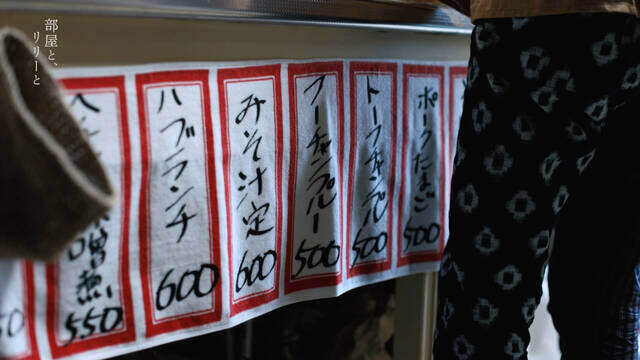 部屋と、
リリーと
ポークたまご
500
トーフチャンプルー
500
フーチャンプルー
500
みそ汁定
600
ハブランチ
600
550